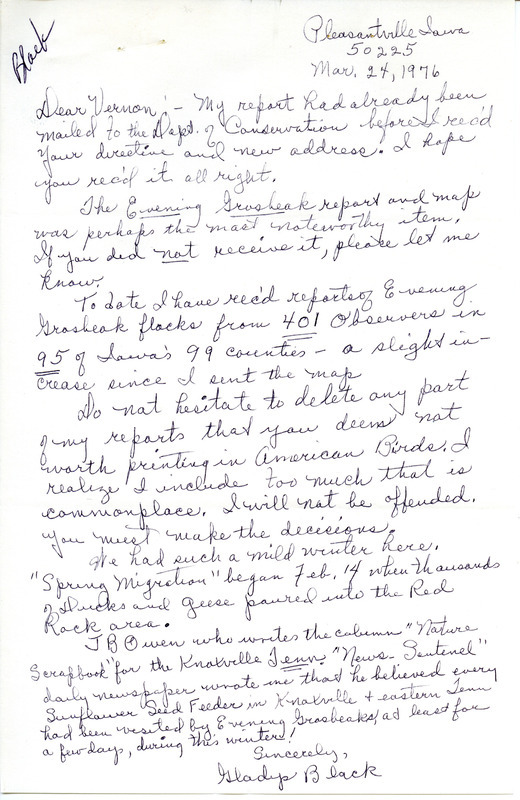 Black
Pleasantville Iowa
50225
Mar. 24, 1976
Dear Vernon: - My report had already been
mailed to the Dept. of Conservation before I rec'd
your directive and new address. I hope
you rec'd it all right.
The Evening Grosbeak report and map
was perhaps the most noteworthy item.
If you did not receive it, please let me
know.
To date I have rec'd reports of Evening
Grosbeak flocks from 401 Observers in
95 of Iowa's 99 counties - a slight in-
crease since I sent the map
Do not hesitate to delete any part
of my reports that you deem not
worth printing in American Birds. I
realize I include too much that is
commonplace. I will not be offended.
You must make the decisions.
We had such a mild winter here.
"Spring Migration" began Feb. 14 when thousands
of Ducks and geese poured into the Red
Rock area.
J B Owen who writes the column "Nature
Scrapbook" for the Knoxville Tenn. "News-Sentinel"
daily newspaper wrote me that he believed every
Sunflower Seed Feeder in Knoxville + eastern Tenn
had been visited by Evening Grosbeaks, at least for
a few days, during this winter!
Sincerely,
Gladys Black